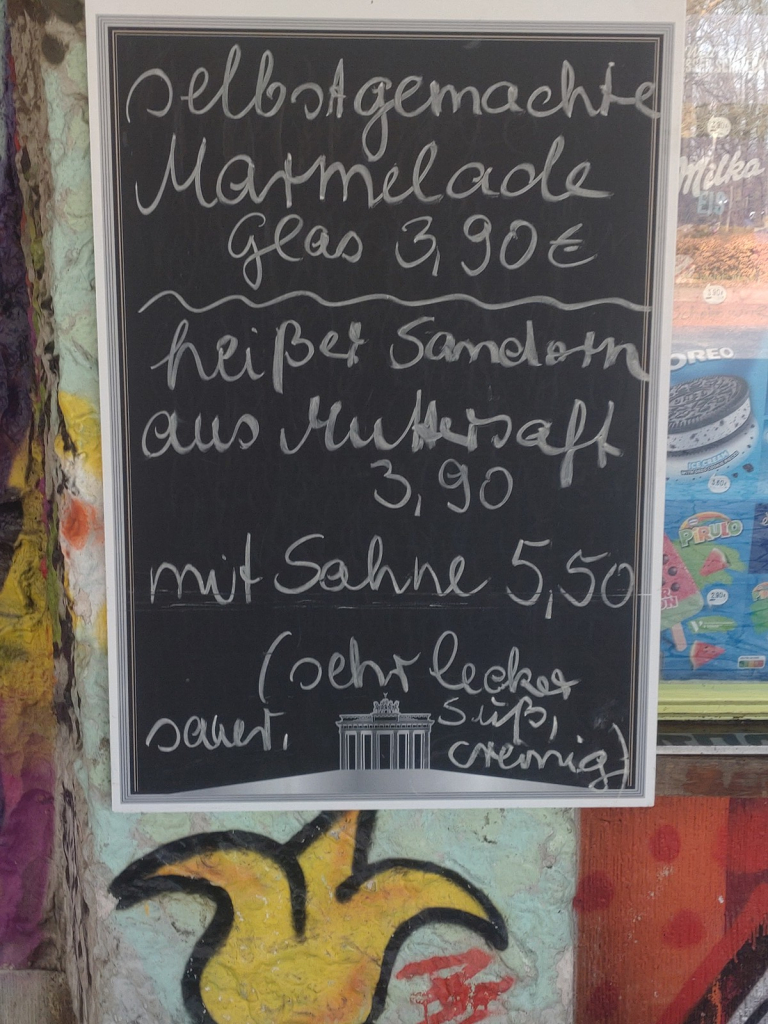 selbstgemachte
Marmelade
Glas 3,90 €
heißer Sandorn
aus Muttersaft
3,90
mit Sahne 5,50
(sehr lecker
sauer, süß,
cremig)
Milka
Eis
OREO
ICE CREAM
PIRULO